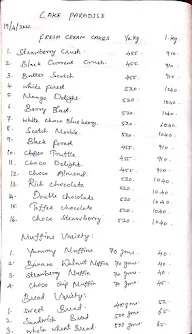 CAKE PARADISE
FRESH CREAM CAKES 1/2 kg 1 kg
1. Strawberry Crush 455 910
2. Black Currant Crush 455 910
3. Butter Scotch 455 910
4. White forest 520 1040
5. Mango Delight 520 1040
6. Berry Blast 520 1040
7. White choco Blueberry 520 1040
8. Scotch Marble 520 1040
9. Black forest 455 910
10. Choco Truffle 455 910
11. Choco Delight 455 910
12. Choco Almond 520 1040
13. Rich chocolate 520 1040
14. Double chocolate 520 1040
15. Toffee chocolate 520 1040
16. Choco Strawberry 520 1040
Muffins Variety:
1. Yummy Muffins 70 gms 40
2. Banana Walnut Muffin 70 gms 40
3. Strawberry Muffin 70 gms 40
4. Choco chip Muffin 70 gms 45
Bread Variety:
1. Sweet Bread 400 gms
2. Sandwich Bread 500 gms 65
3. Whole wheat Bread 500 gms 65